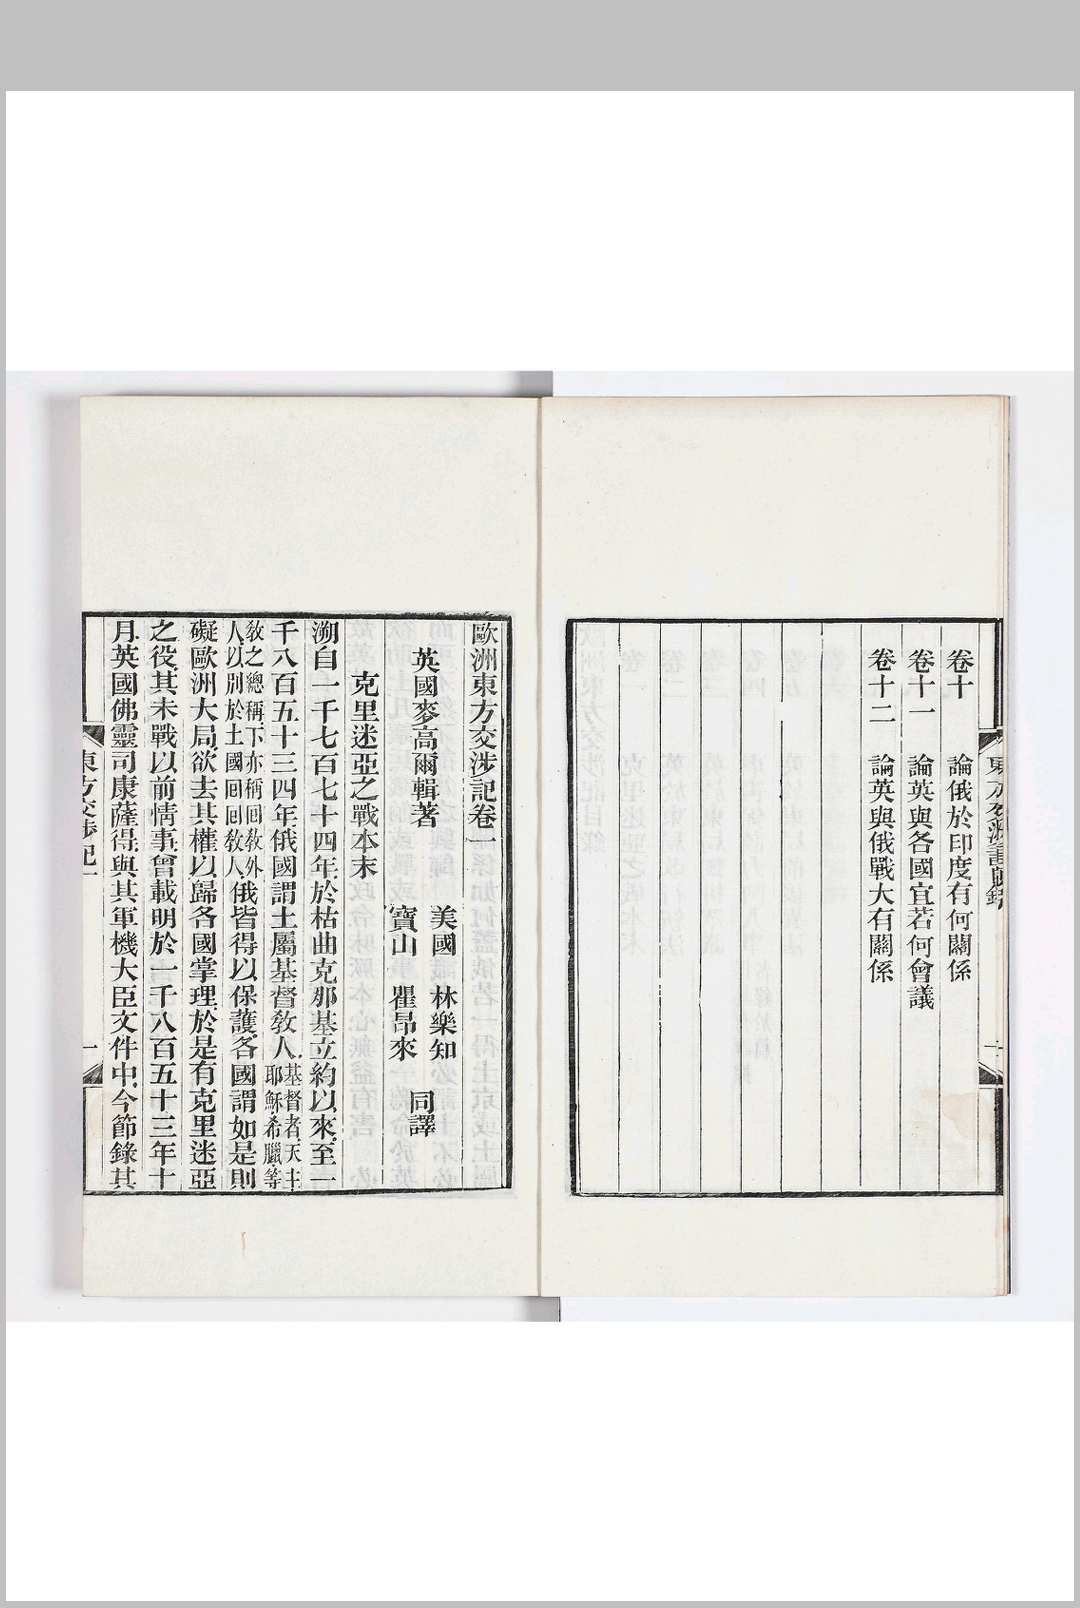 卷十　論俄於印度有何關係
卷十一　論英與各國宜若何會議
卷十二　論英與俄戰大有關係
歐洲東方交涉記卷一
英國麥高爾輯著
美國　林樂知
寶山　瞿昂來
同譯
克里迷亞之戰本末
溯自一千七百七十四年於枯曲克那基立約以來至一
千八百五十三四年俄國謂土屬基督敎人基督者天主耶穌希臘等
敎之總稱下亦稱回敎外人以別於土國回回敎人俄皆得以保護各國謂如是則
礙歐洲大局欲去其權以歸各國掌理於是有克里迷亞
之役其未戰以前情事曾載明於一千八百五十三年十
月英國佛靈司康薩得與其軍機大臣文件中今節錄其
東方交涉記一
一